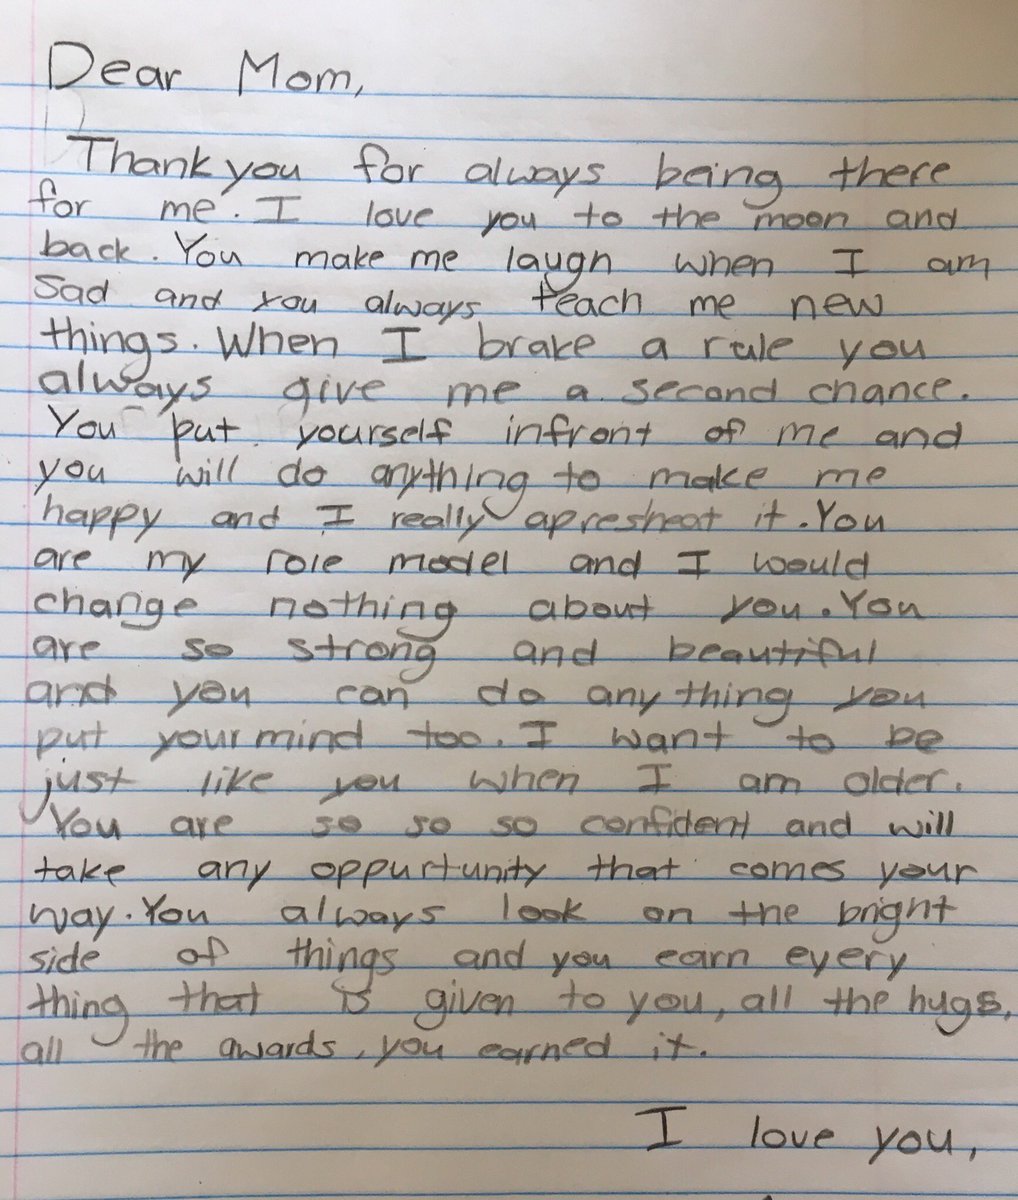 Dear Mom,
Thank you for always being there
for me. I love you to the moon and
back. You make me laugh when I am
Sad and you always teach me new
things. When I brake a rule you
always give me a second chance.
You put yourself infront of me and
you will do anything to make me
happy and I really apresheat it. You
are my role model and I would
change nothing about you. You
are so strong and beautiful
and you can do any thing you
put your mind too. I want to be
just like you when I am older.
You are so so so confident and will
take any oppurtunity that comes your
way. You always look on the bright
side of things and you earn every
thing that is given to you, all the hugs,
all the awards, you earned it.
I love you,